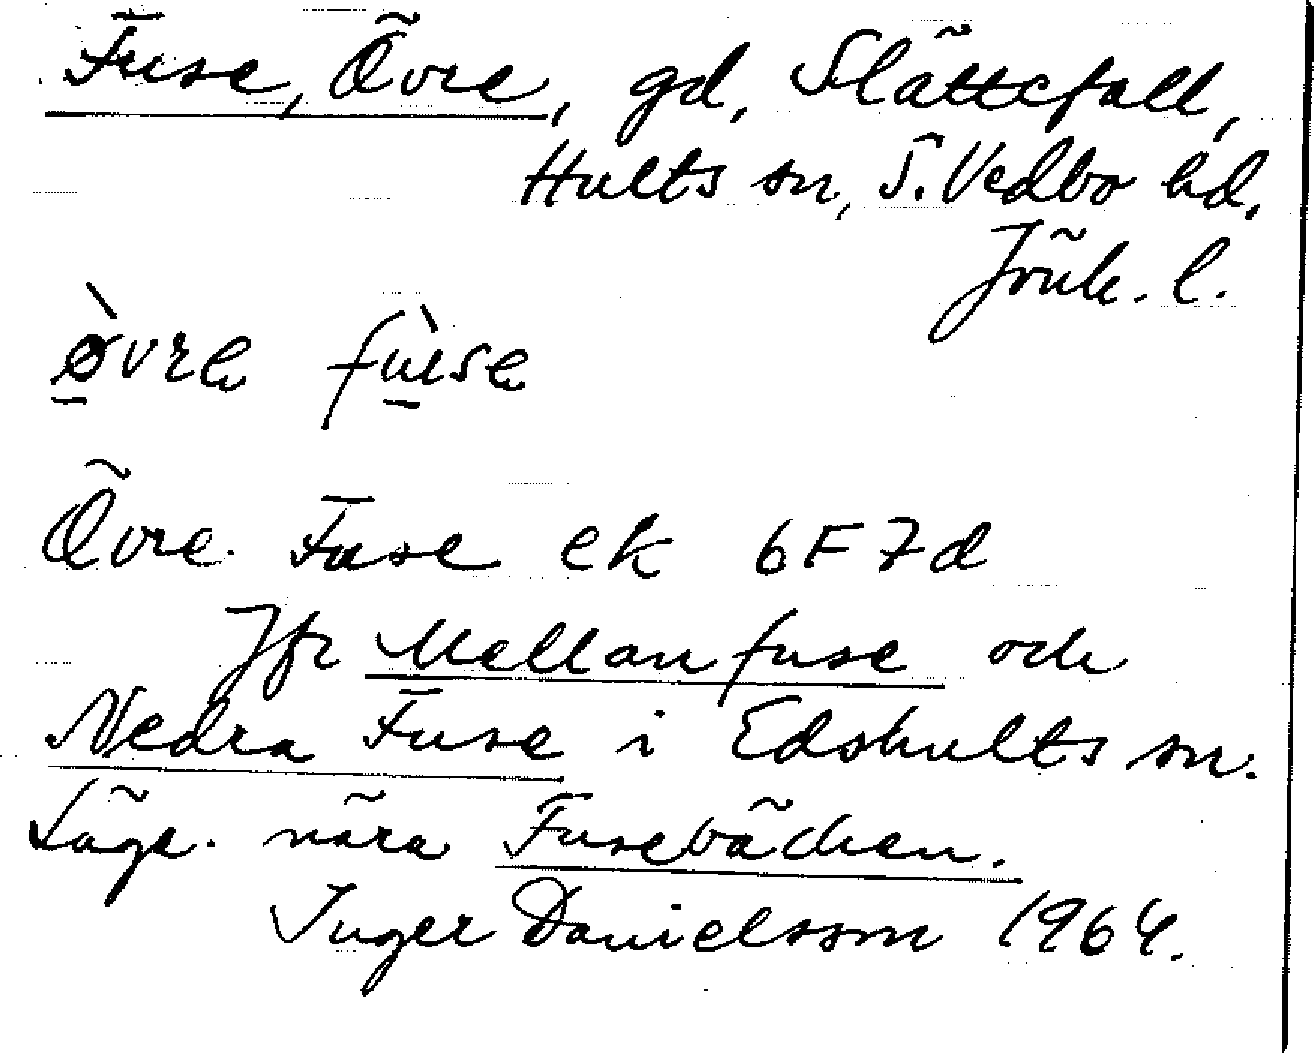 Fuse, Övre, gd, Slättefall,
Hults sn, S. Vedbo hd,
Jönk. l.
ø̀vre fùse
Övre Fuse ek 6F7d
Jfr Mellanfuse och
Nedra Fuse i Edshults sn.
Läge. nära Fusebäcken.
Inger Danielsson 1964.